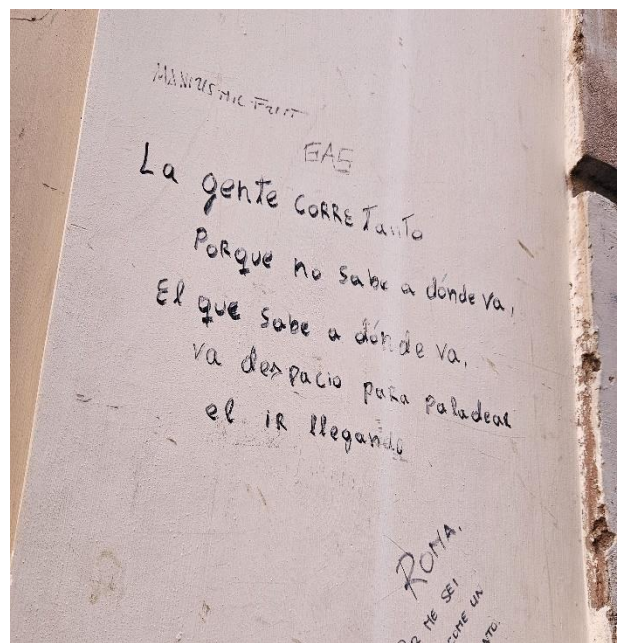 GAS
La gente CORRE Tanto
PoRque no sabe a dónde va,
El que sabe a dónde va,
va despacio para paladear
el iR llegando
ROMA,
ME SEI
COME UN